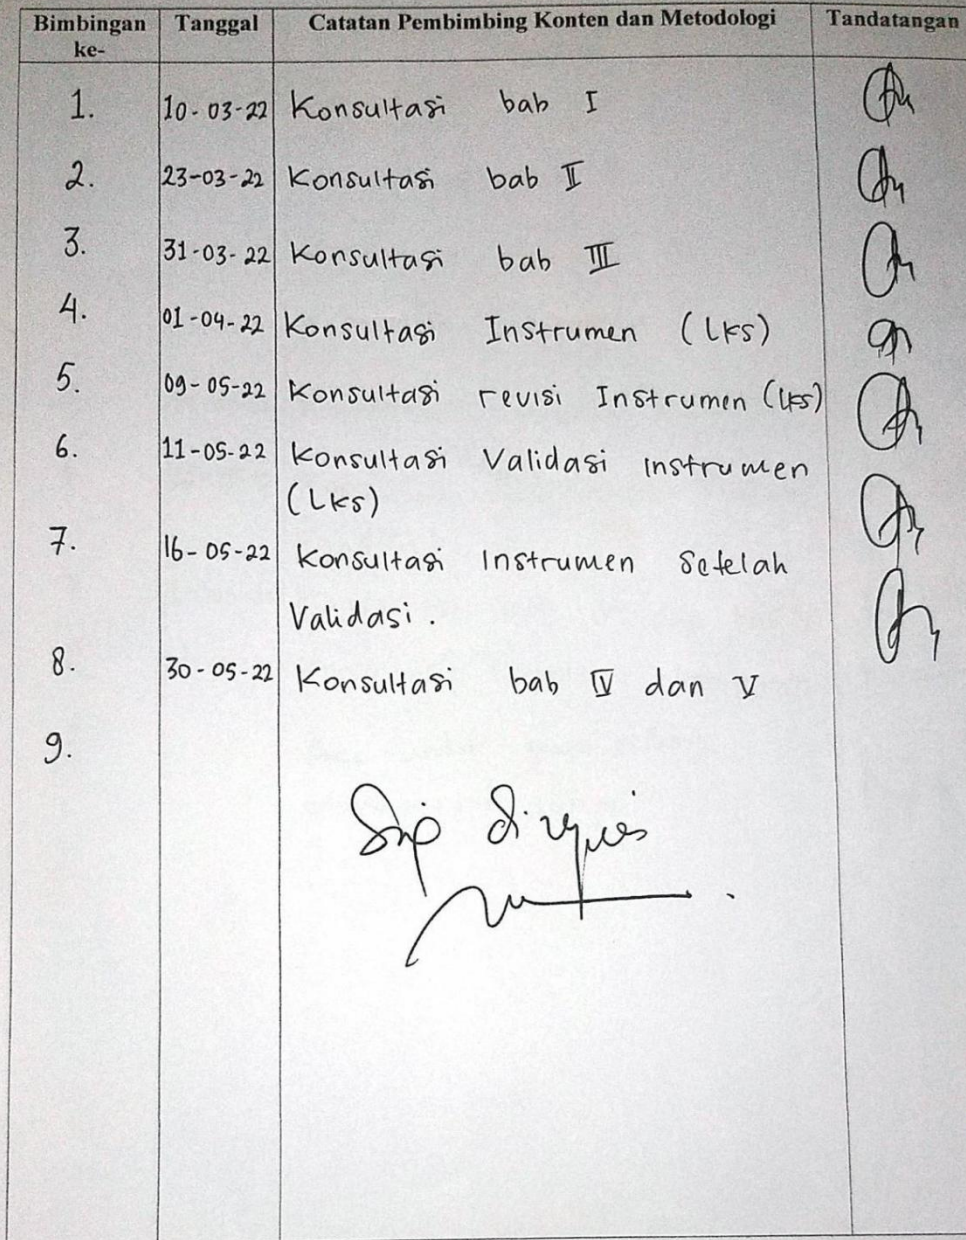 Bimbingan ke- Tanggal Catatan Pembimbing Konten dan Metodologi Tandatangan
1. 10-03-22 Konsultasi bab I
2. 23-03-22 Konsultasi bab II
3. 31-03-22 Konsultasi bab III
4. 01-04-22 Konsultasi Instrumen (Lks)
5. 09-05-22 Konsultasi revisi Instrumen (Lks)
6. 11-05-22 Konsultasi Validasi Instrumen
(Lks)
7. 16-05-22 Konsultasi Instrumen Setelah
Validasi.
8. 30-05-22 Konsultasi bab IV dan V
9.